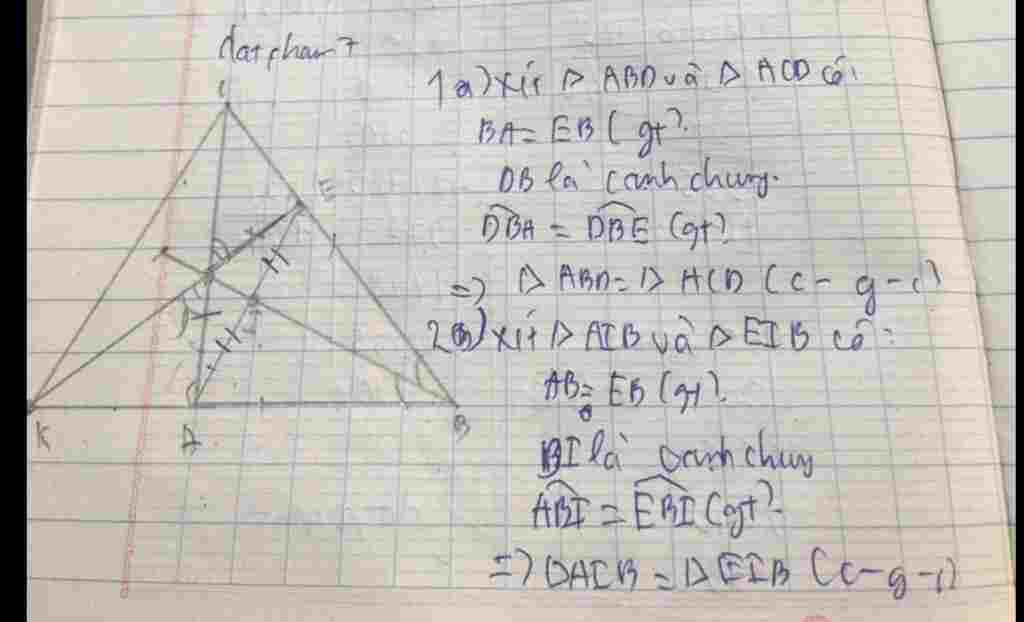 datphan7
C
E
D
I
K
A
B
1 a) xét Δ ABD và Δ ACD có:
BA = EB (gt).
DB là cạnh chung.
DBA = DBE (gt).
=> Δ ABD = Δ ACD (c - g - c)
2 a) xét Δ AIB và Δ EIB có:
AB = EB (gt).
BI là cạnh chung
ABI = EBI (gt).
=> ΔAIB = Δ EIB (c-g-c)